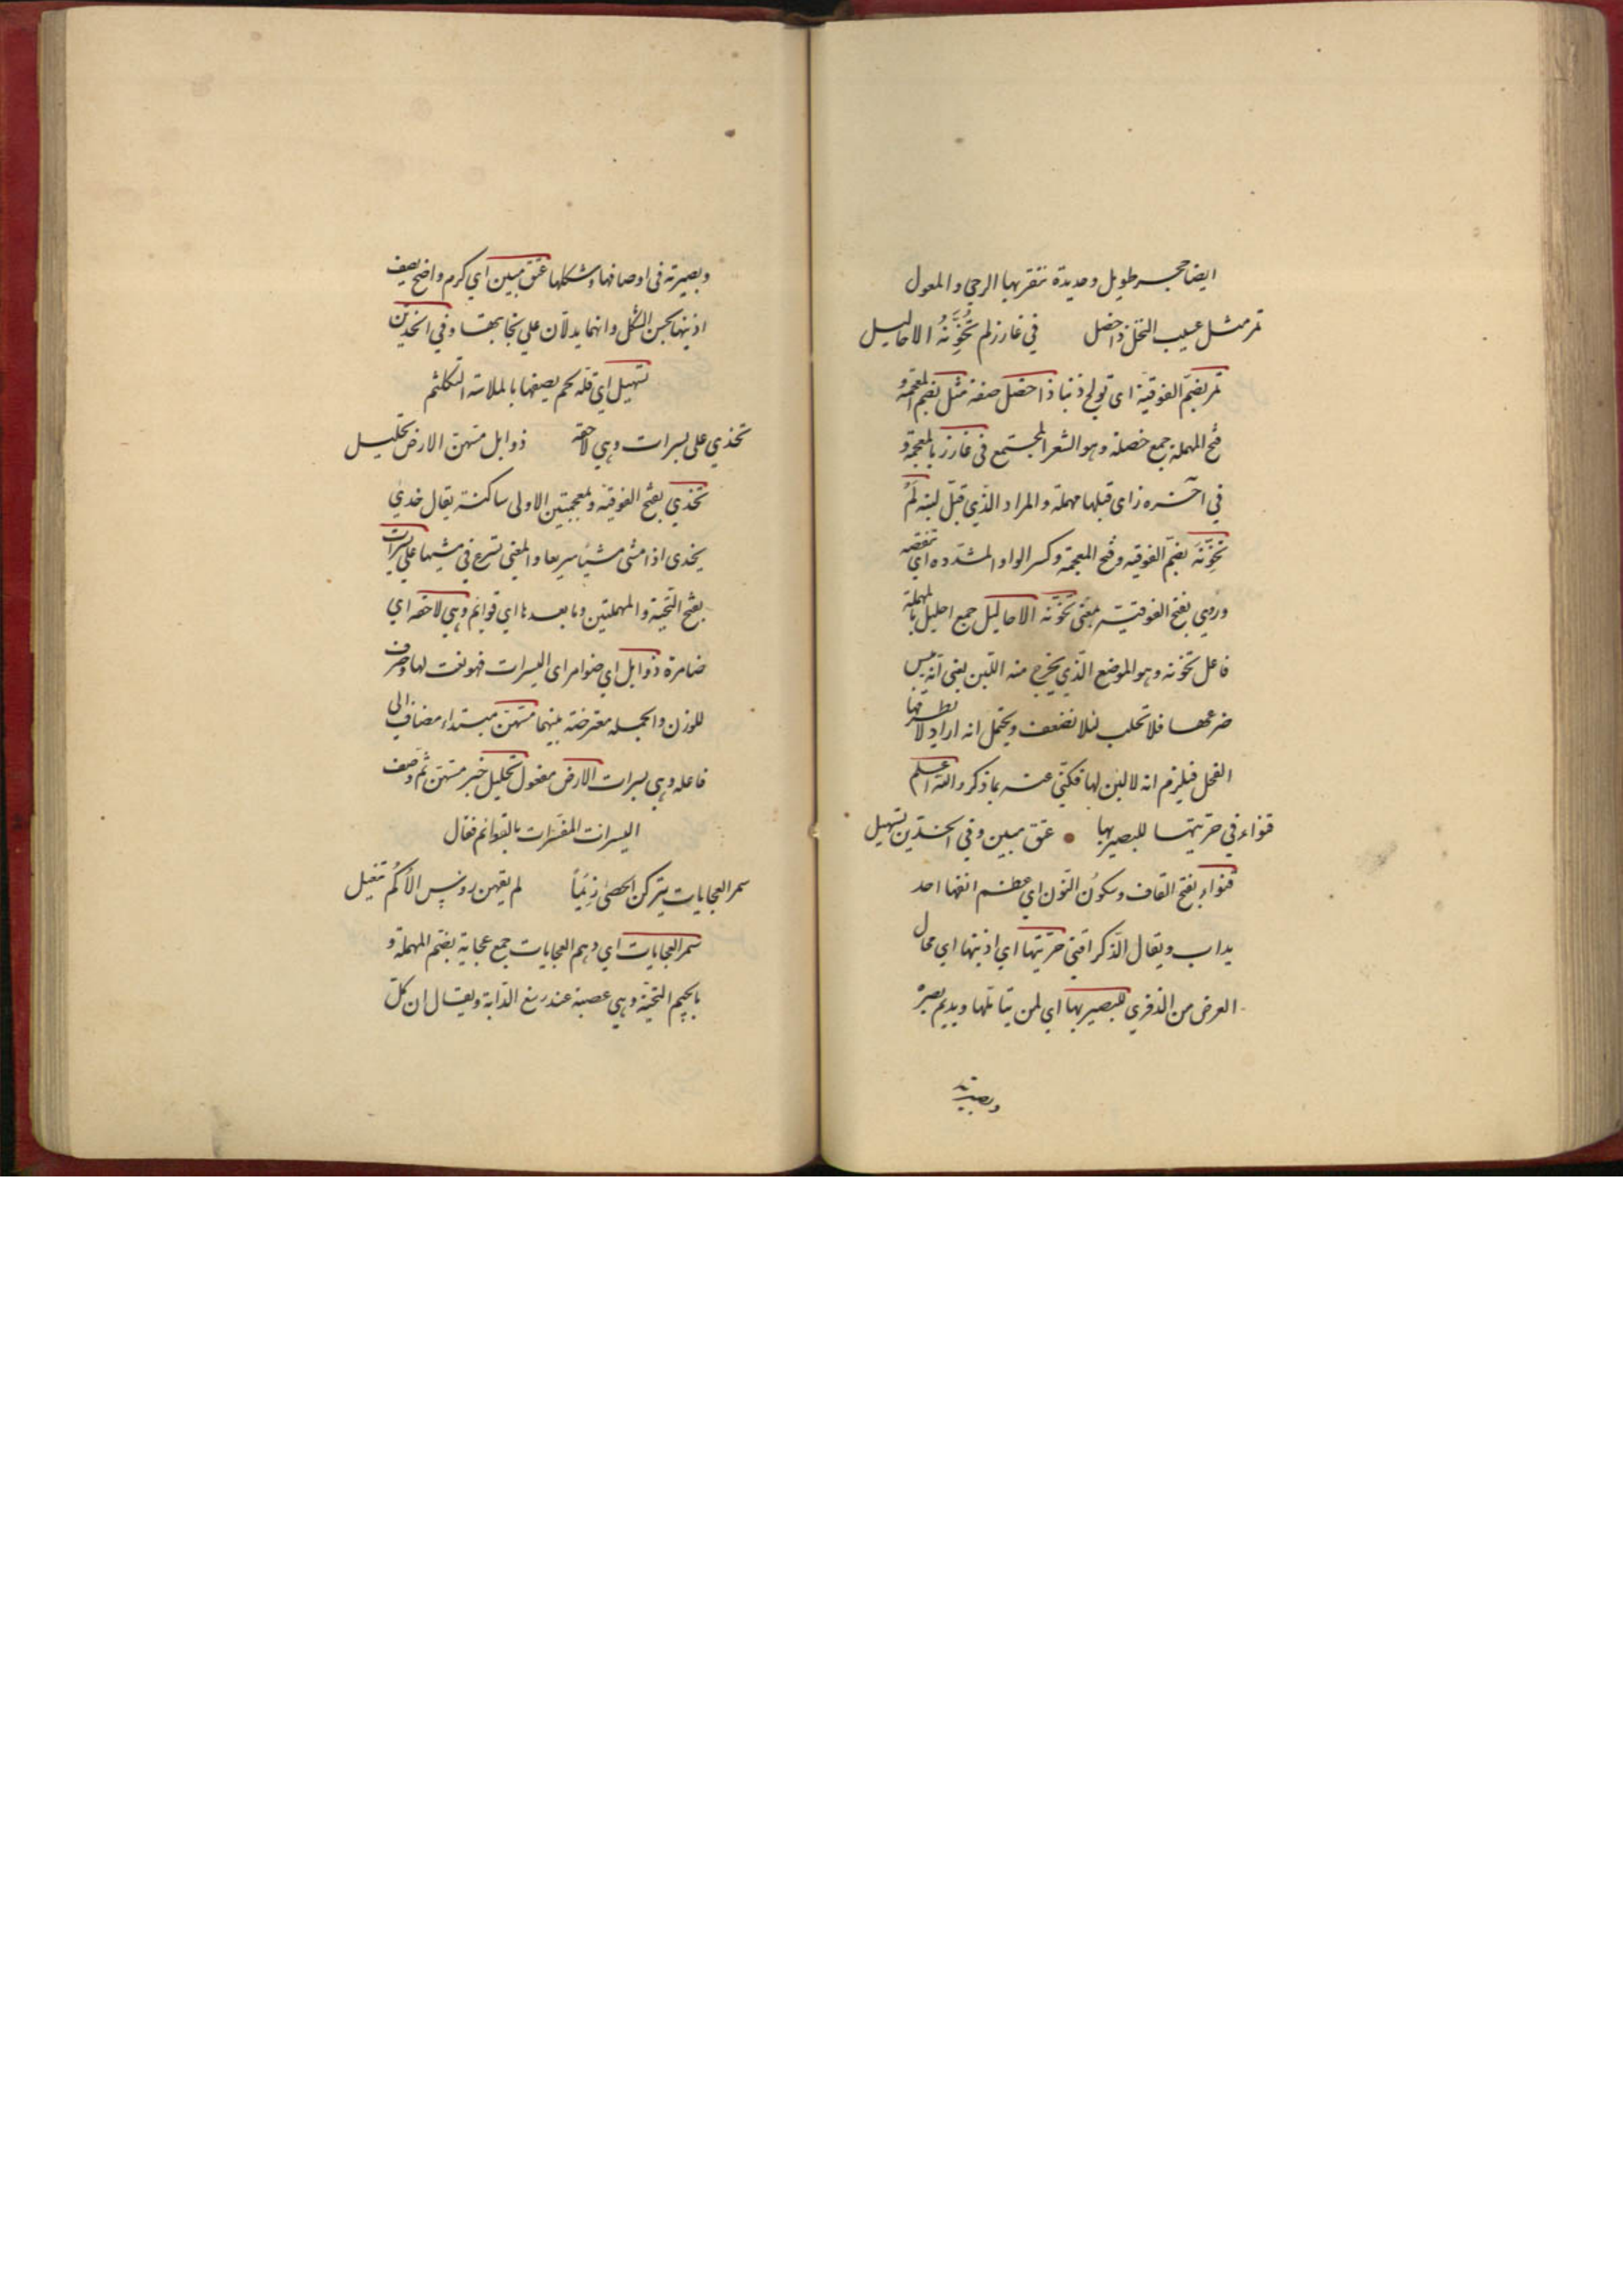 ايضا حجر طويل وحديدة تنقر بها الرحي والمعول
تمر مثل عسيب النخل ذا خصل في غارز لم تُخَوِّنْهُ الاحاليل
تمر بضم الفوقية اى تولج ذنبا ذا خصل صفة مثل بضم المعجمة و
فتح المهملة جمع خصلة وهو الشعر المجتمع في غارز بالمعجمة و
في آخره زاى قبلها مهملة والمراد الذي قبل لبنه لم
تخونه بضم الفوقيه وفتح المعجمة وكسر الواو المشدده اي تنقصه
وروي بفتح الفوقية بمعنى تخونه الاحاليل جمع احليل بالمهملة
فاعل تخونه وهو الموضع الذي يخرج منه اللبن يعني انه يبس
ضرعها فلا تحلب لئلا تضعف ويحتمل انه اراد لا يطرقها
الفحل فيلزم انه لا لبن لها فكنى عنه بما ذكر والله اعلم
قنواء في حرتيها للبصير بها عتق مبين وفي الخدين تسهيل
قنواء بفتح القاف وسكون النون اي عظم انفها احد
يداب ويقال الذكر اقنى حرتيها اي اذنيها اي محال
العرض من الذفري للبصير بها اي لمن يتاملها ويديم بصره
وبصيرته
وبصيرته في اوصافها وشكلها عتق مبين اي كرم واضح يصف
اذنيها بحسن الشكل وانهما يدلان علي نجابتها وفي الخدين
تسهيل اي قلة لحم يصفها بالملاسة التكلثم
تخذي على يسرات وهي لاحقة ذوابل مسهن الارض تحليل
تخذي بفتح الفوقية ومعجمتين الاولى ساكنة يقال خدي
يخدى اذا مشى مشيا سريعا والمعنى تسرع في مشيها علي يسرات
بفتح التحتية والمهملتين وما بعدها اي قوائم وهي لاحقه اي
ضامرة ذوابل اي ضوامر اى اليسرات فهو نعت لها وصرف
للوزن والجملة معترضة بينهما مسهن مبتداء مضاف الى
فاعله وهي يسرات الارض مفعول تحليل خبر مسهن ثم وصف
اليسرات المفسرات بالقوائم فقال
سمر العجايات يتركن الحصى زِيَماً لم يقهن رؤس الاكُم تنعيل
سمر العجايات اي وهم العجايات جمع عجاية بضم المهملة و
بالجيم التحتية وهي عصبة عند رسغ الدابة ويقال ان كل